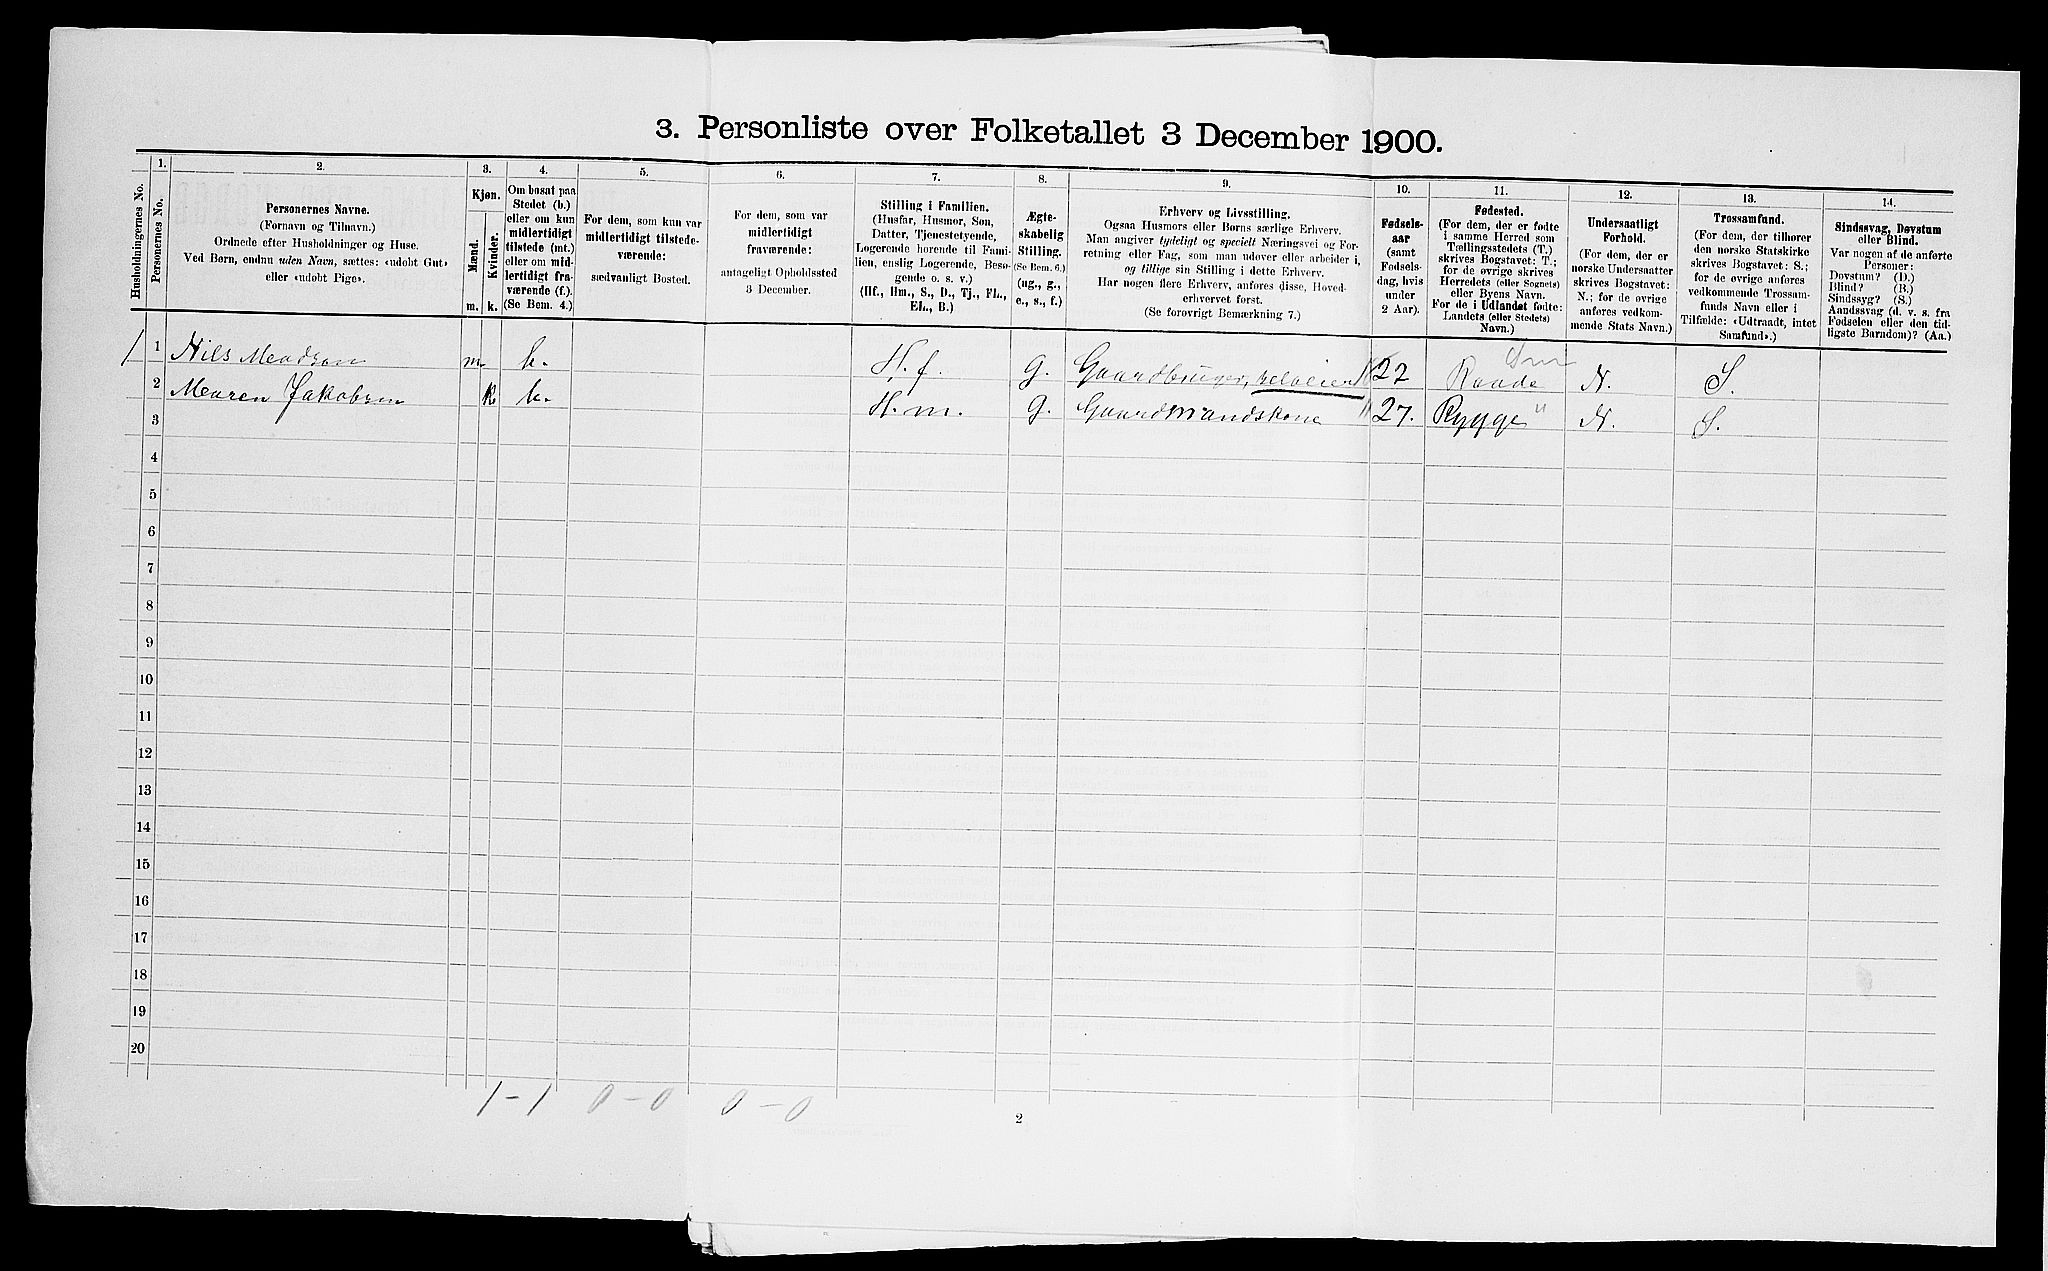 3. Personliste over Folketallet 3 December 1900.
Husholdningernes No.
1.
Personernes No.
2.
Personernes Navne.
(Fornavn og Tilnavn.)
Ordnede efter Husholdninger og Huse.
Ved Børn, endnu uden Navn, sættes: «udøbt Gut»
eller «udøbt Pige».
3.
Kjøn.
Mænd.
Kvinder.
m. k.
4.
Om bosat paa
Stedet (b.)
eller om kun
midlertidigt
tilstede (mt.)
eller om mid-
lertidigt fra-
værende (f.).
(Se Bem. 4.)
5.
For dem, som kun var
midlertidigt tilstede-
værende:
sædvanligt Bosted.
6.
For dem, som var
midlertidigt
fraværende:
antageligt Opholdssted
3 December.
7.
Stilling i Familien.
(Husfar, Husmor, Søn,
Datter, Tjenestetyende,
Logerende hørende til Fami-
lien, enslig Logerende, Besø-
gende o. s. v.)
(Hf., Hm., S., D., Tj., FL.,
EL., B.)
8.
Ægte-
skabelig
Stilling.
(Se Bem. 6.)
(ug., g.,
e., s., f.)
9.
Erhverv og Livsstilling.
Ogsaa Husmors eller Børns særlige Erhverv.
Man angiver tydeligt og specielt Næringsvei og For-
retning eller Fag, som man udøver eller arbeider i,
og tillige sin Stilling i dette Erhverv.
Har nogen flere Erhverv, anføres disse, Hoved-
erhvervet først.
(Se forøvrigt Bemærkning 7.)
10.
Fødsels-
aar
(samt
Fødsels-
dag, hvis
under
2 Aar).
11.
Fødested.
(For dem, der er fødte
i samme Herred som
Tællingsstedets (T.)
skrives Bogstavet: T.;
for de øvrige skrives
Herredets (eller Sognets)
eller Byens Navn.
For de i Udlandet fødte:
Landets (eller Stedets)
Navn.)
12.
Undersaatligt
Forhold.
(For dem, der er
norske Undersaatter
skrives Bogstavet:
N.; for de øvrige
anføres vedkom-
mende Stats Navn.)
13.
Trossamfund.
(For dem, der tilhører
den norske Statskirke
skrives Bogstavet: S.;
for de øvrige anføres
vedkommende Trossam-
funds Navn eller i
Tilfælde: «Udtraadt, intet
Samfund».)
14.
Sindssvag, Døvstum
eller Blind.
Var nogen af de anførte
Personer:
Døvstum? (D.)
Blind? (B.)
Sindssyg? (S.)
Aandssvag (d. v. s. fra
Fødselen eller den tid-
ligste Barndom)? (Aa.)
1 1 Nils Madson m. b. H. f. g. Gaardbruger, selveier 22 Raade N. S.
2 Maren Jakobsen k b. H. m. g. Gaardmandskone 27. Rygge " N. S.
3
4
5
6
7
8
9
10
11
12
13
14
15
16
17
18
19
20
1 - 1 0 - 0 0 - 0
2